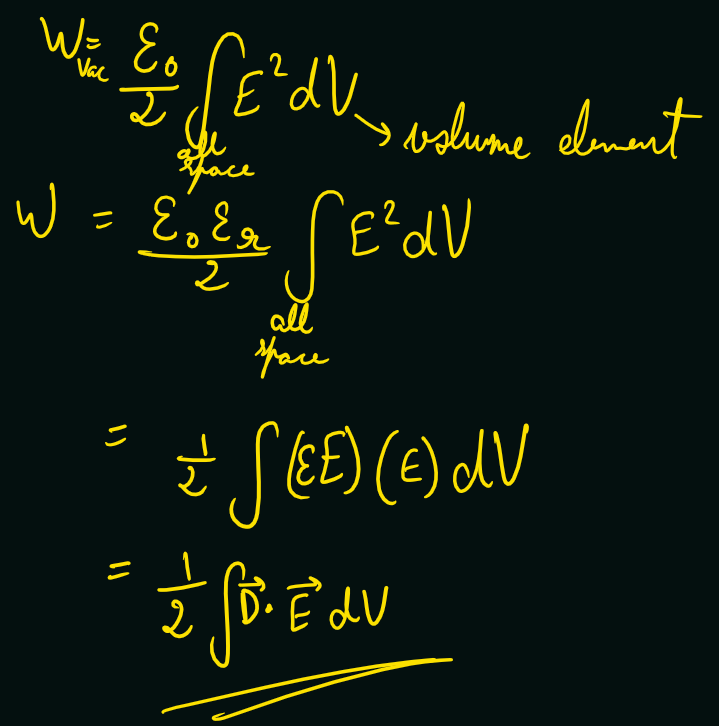 W_vac = ε₀/2 ∫_all space E² dV → volume element
W = ε₀ε_r/2 ∫_all space E² dV
= 1/2 ∫ (εE) (E) dV
= 1/2 ∫ D⃗ · E⃗ dV